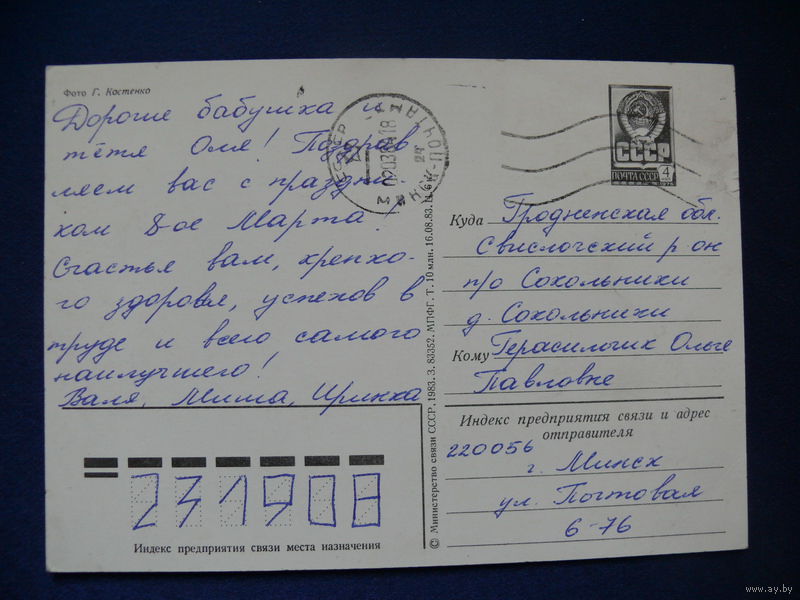 Фото Г. Костенко
Дорогие бабушка и
тётя Оля! Поздрав
ляем вас с праздни
ком 8-ое Марта!
Счастья вам, крепко-
го здоровья, успехов в
труде и всего самого
наилучшего!
Валя, Миша, Иринка
231908
Индекс предприятия связи места назначения
© Министерство связи СССР, 1983. З. 83352. МПФГ. Т. 10 млн. 16.08.83.
СССР
ПОЧТА СССР 4
Куда Гродненская обл.
Свислочский р он
п/о Сокольники
д. Сокольники
Кому Герасимчик Ольге
Павловне
Индекс предприятия связи и адрес
отправителя
220056
г. Минск
ул. Почтовая
6-76
www.ay.by